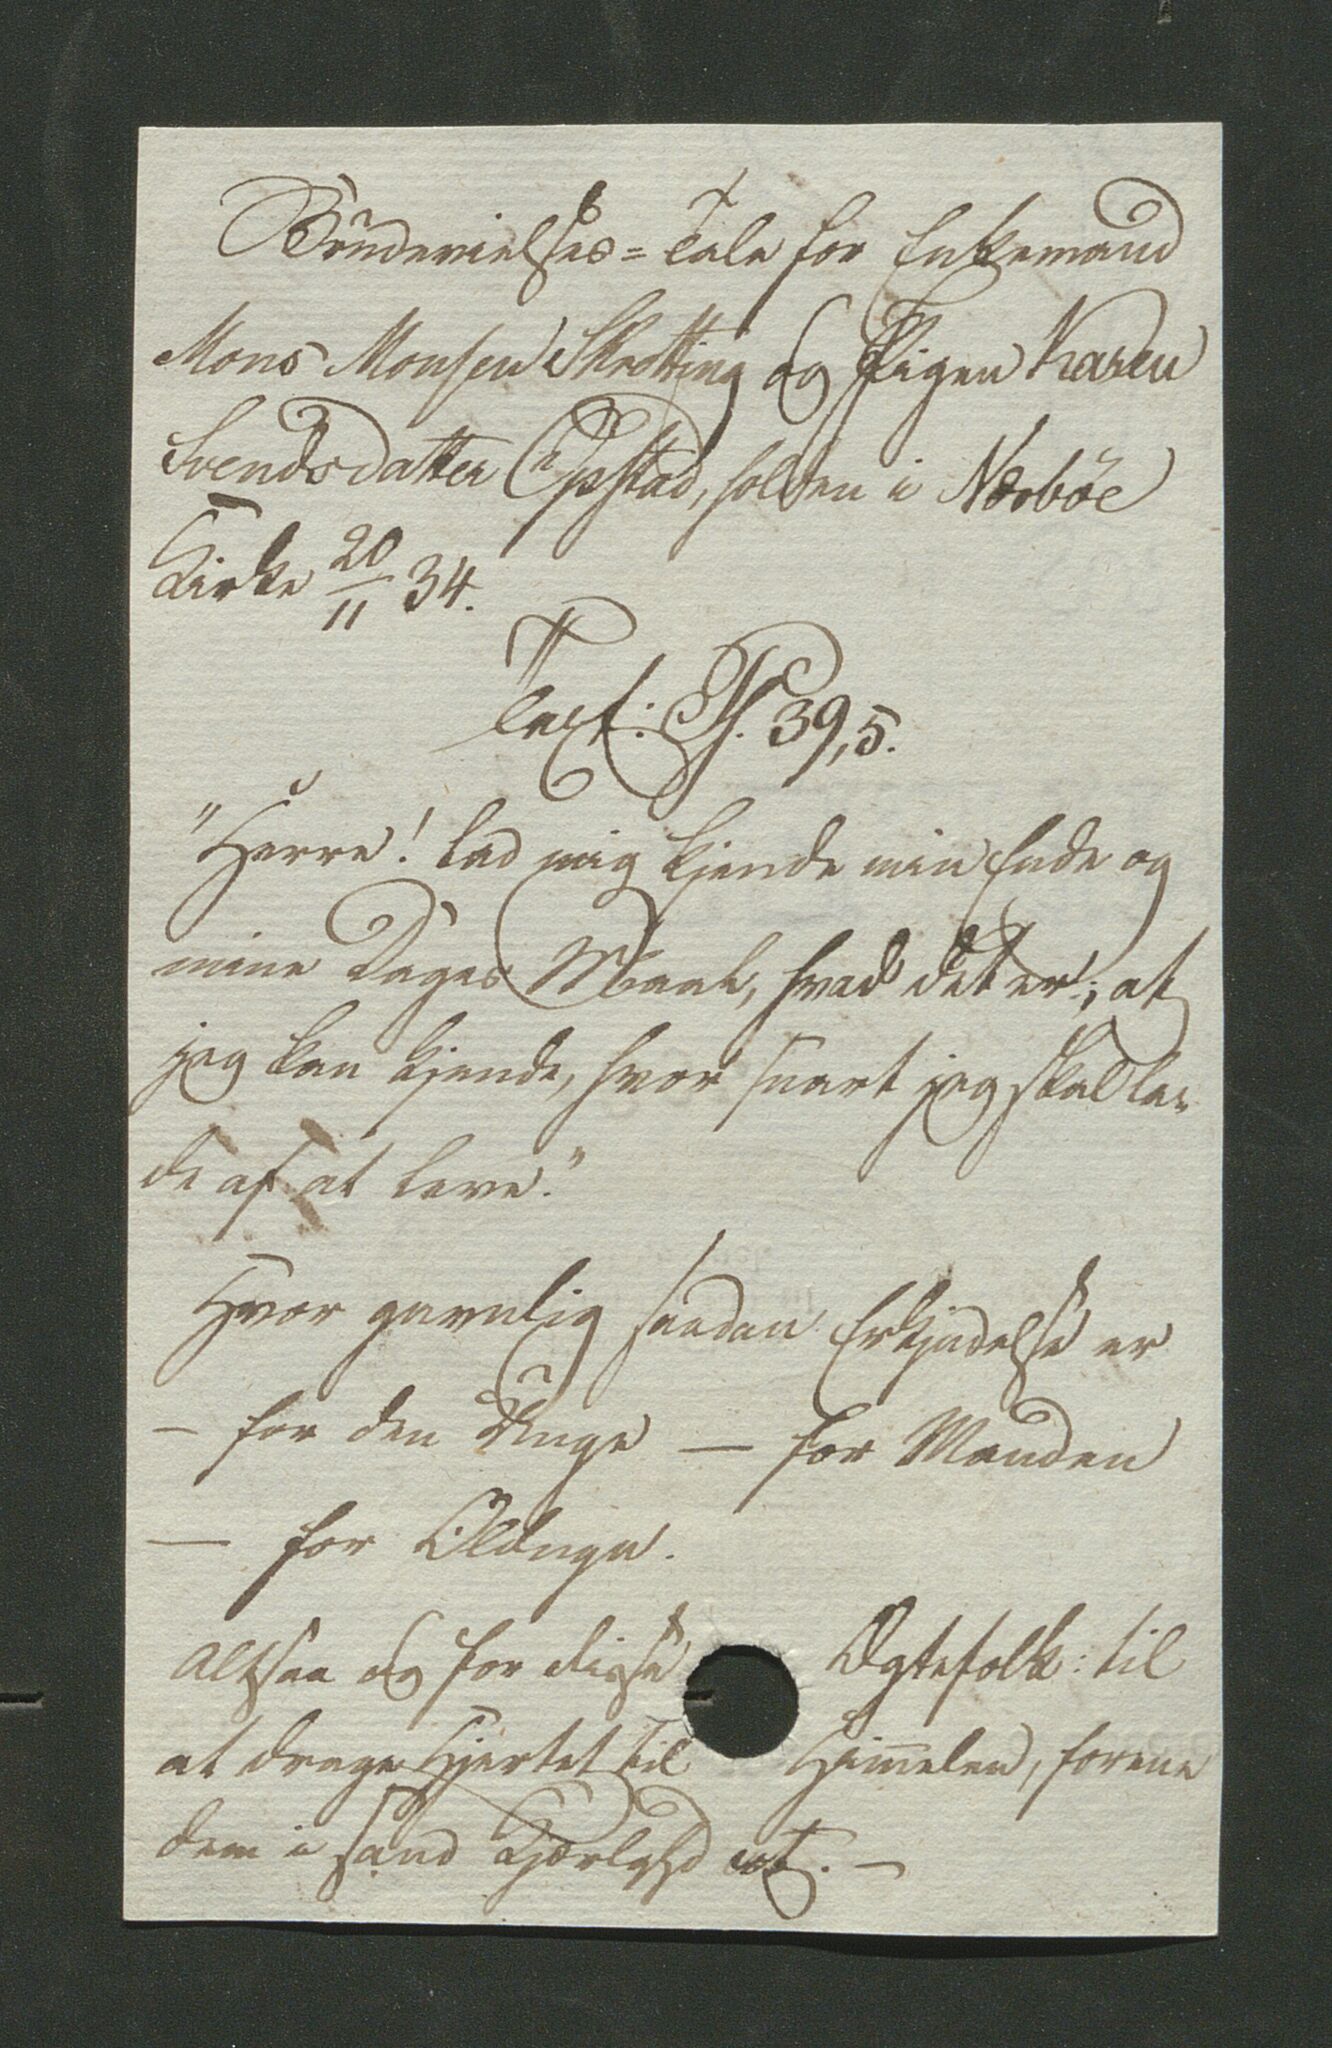 Brudevielses-Tale for Enkemand
Mons Monsen Skretting og Pigen Karen
Svendsdatter Opstad, holden i Nærbøe
Kirke 20/11 34.
Text: Ps. 39,5.
"Herre! lad mig kjende min Ende og
mine Dages Maal, hvad det er; at
jeg kan kjende, hvor snart jeg skal la-
de af at leve."
Hvor gavnlig saadan Erkjendelse er
– for den Unge – for Manden
– for Oldnge.
altsaa og for disse Ægtefolk: til
at drage Hjertet til Himmelen, forene
dem i sand Kjærlighd